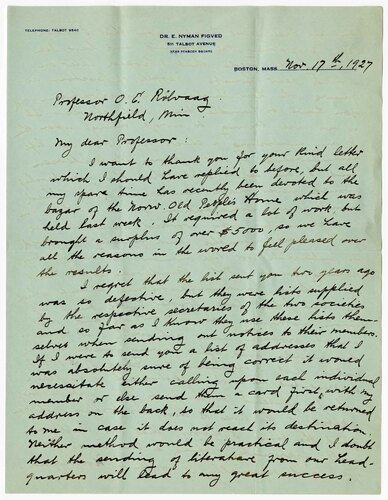 TELEPHONE: TALBOT 9540
DR. E. NYMAN FIGVED
511 TALBOT AVENUE
NEAR PEABODY SQUARE
BOSTON, MASS. Nov. 17th, 1927
Professor O. E. Rölvaag
Northfield, Min
My dear Professor:
I want to thank you for your kind letter
which I should have replied to before, but all
my spare time has recently been devoted to the
bazar of the Norw. Old People's Home which was
held last week. It required a lot of work, but
brought a surplus of over $5000, so we have
all the reasons in the world to feel pleased over
the results.
I regret that the list sent you two years ago
was so defective, but they were lists supplied
by the respective secretaries of the two societies
and so far as I know they use these lists them-
selves when sending out notices to their members.
If I were to send you a list of addresses that I
was absolutely sure of being correct it would
necessitate either calling upon each individual
member or else send them a card first, with my
address on the back, so that it would be returned
to me in case it does not reach its destination.
Neither method would be practical and I doubt
that the sending of literature from our head-
quarters will lead to any great success.